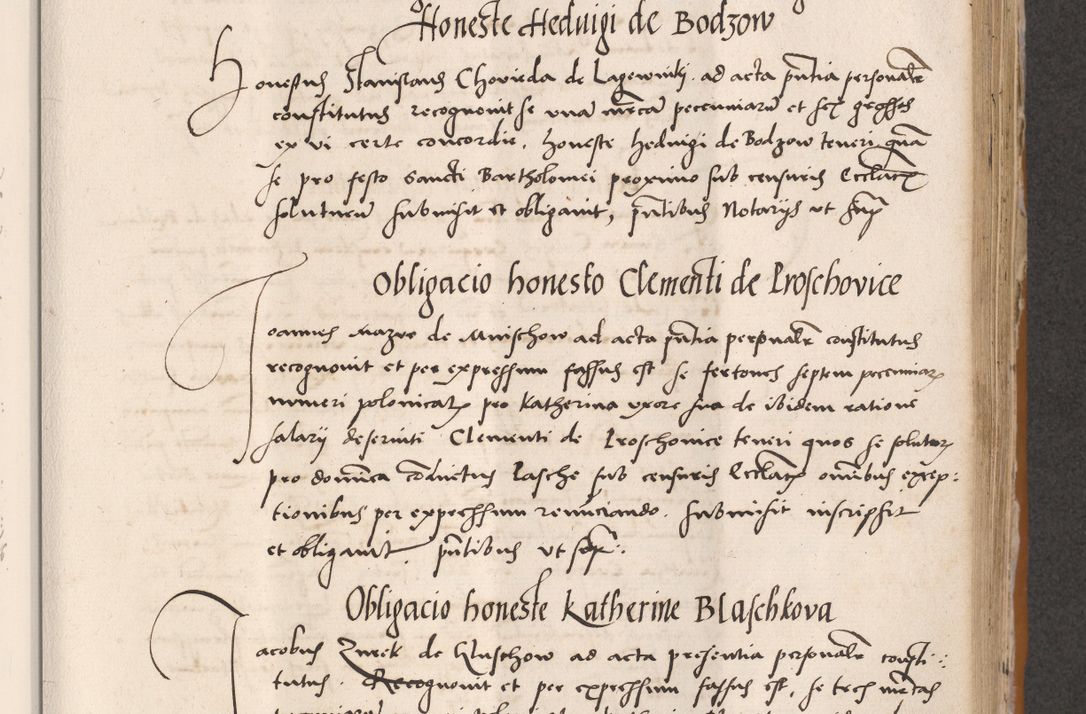 Honeste Heduigi de Bodzow
Honestus Stanislaus Chovieda de Lagewniky ad acta pñtia personalr
constitutus recognouit se vnã mrcã pecuniarũ et sex grosses
ex vi certe concordie, honeste Heduigi de Bodzow teneri quã
se pro festo Sancti Bartholomei proximo sub censuris Ecclãtz
soluturũ submisit et obligauit, pñtibus Notarijs vt supra
Obligacio honesto Clementi de Proschovice
Joannes Mazur de Mnischow ad acta pñtia personalr constitutus
recognouit et per expressum fassus est se fertones septem pecuniarz
numeri polonicatz pro Katherina vxore sua de ibidem ratione
salarij deseruiti Clementi de Proschouice teneri quos se soluturz
pro domica conductus Pasche sub censuris Ecclãtz omibus excep:
tionibus per expressum renũciando. submisit inscripsit
et obligauit, pñtibus vt supra.
Obligacio honeste Katherine Blaschkova
Jacobus Zurek de Kluschow ad acta presentia personalr consti:
tutus. Recognouit et per expressum fassus est, se tres mrcas